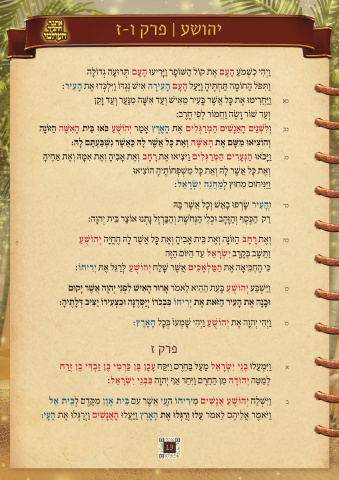 יהושע | פרק ו-ז
וַיְהִי כִשְׁמֹעַ הָעָם אֶת קוֹל הַשּׁוֹפָר וַיָּרִיעוּ הָעָם תְּרוּעָה גְדוֹלָה
וַתִּפֹּל הַחוֹמָה תַּחְתֶּיהָ וַיַּעַל הָעָם הָעִירָה אִישׁ נֶגְדּוֹ וַיִּלְכְּדוּ אֶת הָעִיר:
כא וַיַּחֲרִימוּ אֶת כָּל אֲשֶׁר בָּעִיר מֵאִישׁ וְעַד אִשָּׁה מִנַּעַר וְעַד זָקֵן
וְעַד שׁוֹר וָשֶׂה וַחֲמוֹר לְפִי חָרֶב:
כב וְלִשְׁנַיִם הָאֲנָשִׁים הַמְרַגְּלִים אֶת הָאָרֶץ אָמַר יְהוֹשֻׁעַ בֹּאוּ בֵּית הָאִשָּׁה הַזּוֹנָה
וְהוֹצִיאוּ מִשָּׁם אֶת הָאִשָּׁה וְאֶת כָּל אֲשֶׁר לָהּ כַּאֲשֶׁר נִשְׁבַּעְתֶּם לָהּ:
כג וַיָּבֹאוּ הַנְּעָרִים הַמְרַגְּלִים וַיֹּצִיאוּ אֶת רָחָב וְאֶת אָבִיהָ וְאֶת אִמָּהּ וְאֶת אַחֶיהָ
וְאֶת כָּל אֲשֶׁר לָהּ וְאֵת כָּל מִשְׁפְּחוֹתֶיהָ הוֹצִיאוּ
וַיַּנִּיחוּם מִחוּץ לְמַחֲנֵה יִשְׂרָאֵל:
כד וְהָעִיר שָׂרְפוּ בָאֵשׁ וְכָל אֲשֶׁר בָּהּ
רַק הַכֶּסֶף וְהַזָּהָב וּכְלֵי הַנְּחֹשֶׁת וְהַבַּרְזֶל נָתְנוּ אוֹצַר בֵּית יְהוָה:
כה וְאֶת רָחָב הַזּוֹנָה וְאֶת בֵּית אָבִיהָ וְאֶת כָּל אֲשֶׁר לָהּ הֶחֱיָה יְהוֹשֻׁעַ
וַתֵּשֶׁב בְּקֶרֶב יִשְׂרָאֵל עַד הַיּוֹם הַזֶּה
כִּי הֶחְבִּיאָה אֶת הַמַּלְאָכִים אֲשֶׁר שָׁלַח יְהוֹשֻׁעַ לְרַגֵּל אֶת יְרִיחוֹ:
כו וַיַּשְׁבַּע יְהוֹשֻׁעַ בָּעֵת הַהִיא לֵאמֹר אָרוּר הָאִישׁ לִפְנֵי יְהוָה אֲשֶׁר יָקוּם
וּבָנָה אֶת הָעִיר הַזֹּאת אֶת יְרִיחוֹ בִּבְכֹרוֹ יְיַסְּדֶנָּה וּבִצְעִירוֹ יַצִּיב דְּלָתֶיהָ:
כז וַיְהִי יְהוָה אֶת יְהוֹשֻׁעַ וַיְהִי שָׁמְעוֹ בְּכָל הָאָרֶץ:
פרק ז
א וַיִּמְעֲלוּ בְנֵי יִשְׂרָאֵל מַעַל בַּחֵרֶם וַיִּקַּח עָכָן בֶּן כַּרְמִי בֶן זַבְדִּי בֶן זֶרַח
לְמַטֵּה יְהוּדָה מִן הַחֵרֶם וַיִּחַר אַף יְהוָה בִּבְנֵי יִשְׂרָאֵל:
ב וַיִּשְׁלַח יְהוֹשֻׁעַ אֲנָשִׁים מִירִיחוֹ הָעַי אֲשֶׁר עִם בֵּית אָוֶן מִקֶּדֶם לְבֵית אֵל
וַיֹּאמֶר אֲלֵיהֶם לֵאמֹר עֲלוּ וְרַגְּלוּ אֶת הָאָרֶץ וַיַּעֲלוּ הָאֲנָשִׁים וַיְרַגְּלוּ אֶת הָעָי:
13